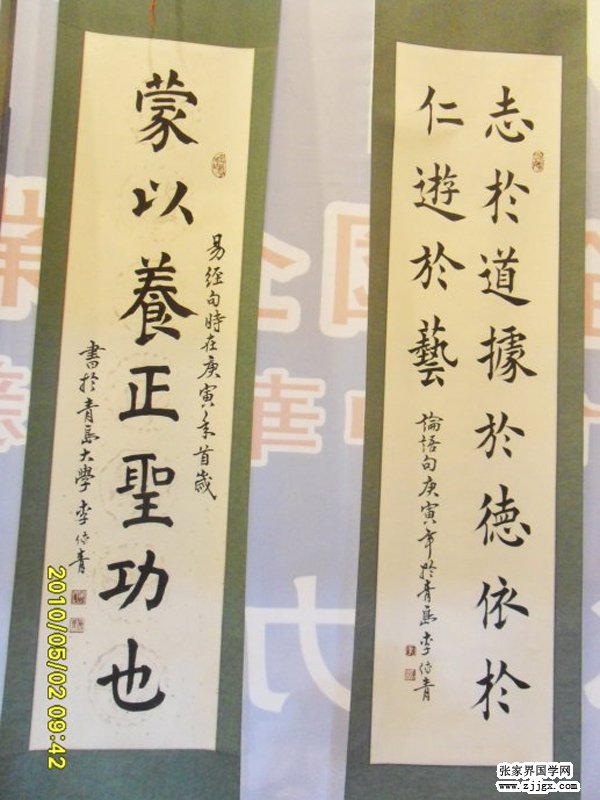 志於道據於德依於
仁遊於藝
論語句庚寅年於青島李
青
蒙以養正聖功也
易經句時在庚寅年首歲
書於青島大學李
青
2010/05/02 09:42
张家界国学网
www.zjjgx.com